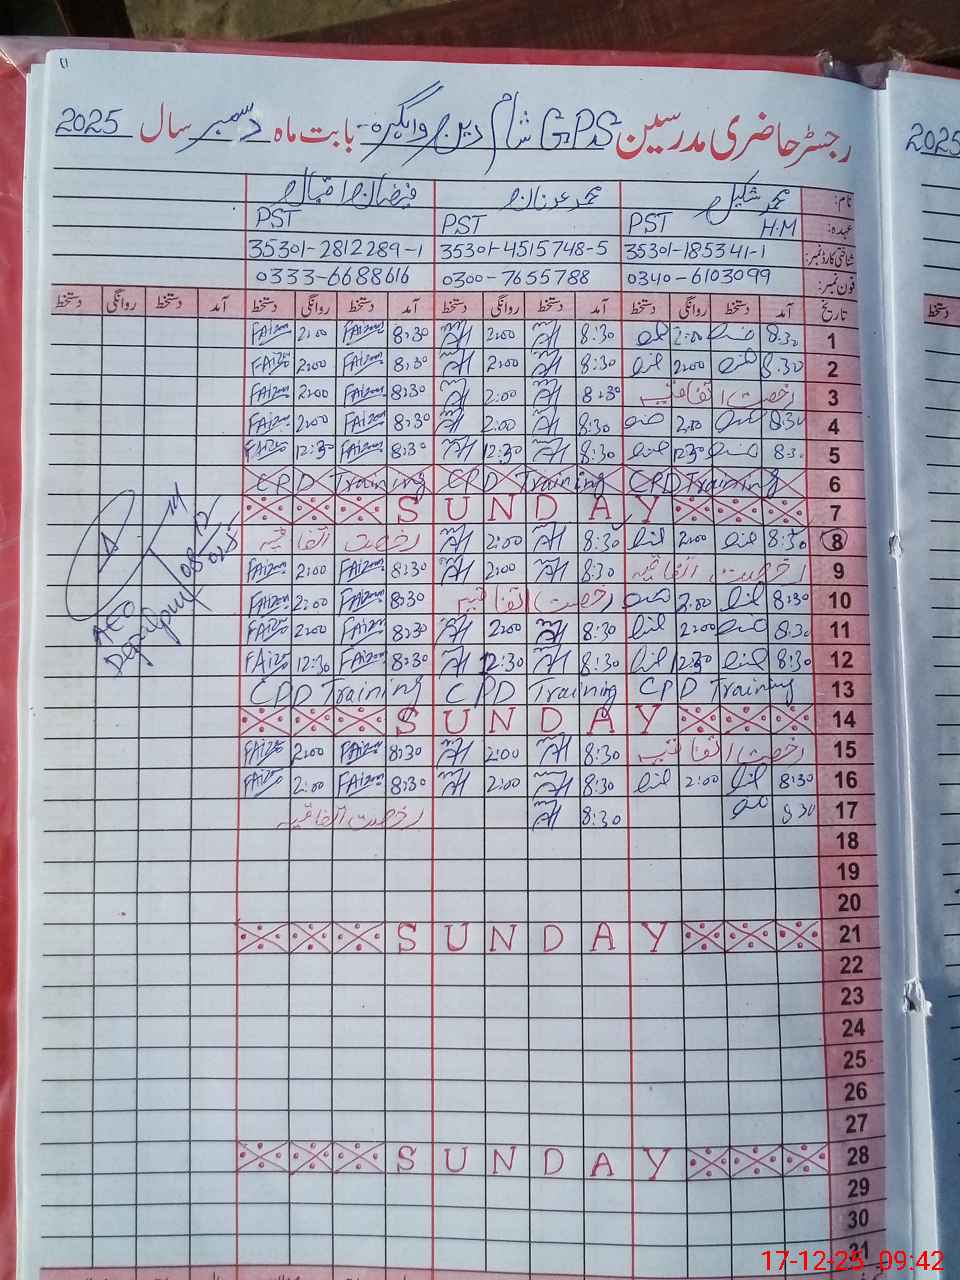 رجسٹر حاضری مدرسین GPS شام دین روانگیرہ بابت ماہ دسمبر سال 2025
2025
نام: محمد شکیل محمد عدنان فیضان اقبال
عہدہ: H.M PST PST PST
شناختی کارڈ نمبر: 35301-185341-1 35301-4515748-5 35301-2812289-1
فون نمبر: 0340-6103099 0300-7655788 0333-6688616
تاریخ آمد دستخط روانگی دستخط آمد دستخط روانگی دستخط آمد دستخط روانگی دستخط آمد دستخط روانگی دستخط
دستخط
1 8:30 2:00 8:30 2:00 8:30 FAizan 2:00 FAizan
2 8:30 2:00 8:30 2:00 8:30 FAizan 2:00 FAizan
3 رخصت اتفاقیہ 8:30 2:00 8:30 FAizan 2:00 FAizan
4 8:30 2:00 8:30 2:00 8:30 FAizan 2:00 FAizan
5 8:30 12:30 8:30 12:30 8:30 FAizan 12:30 FAizan
6 CPD Training CPD Training CPD Training
7 SUNDAY
8 8:30 2:00 8:30 2:00 رخصت اتفاقیہ
9 رخصت اتفاقیہ 8:30 2:00 8:30 FAizan 2:00 FAizan
10 8:30 2:00 رخصت اتفاقیہ 8:30 FAizan 2:00 FAizan
11 8:30 2:00 8:30 2:00 8:30 FAizan 2:00 FAizan
12 8:30 12:30 8:30 12:30 8:30 FAizan 12:30 FAizan
13 CPD Training CPD Training CPD Training
14 SUNDAY
15 رخصت اتفاقیہ 8:30 2:00 8:30 FAizan 2:00 FAizan
16 8:30 2:00 8:30 2:00 8:30 FAizan 2:00 FAizan
17 8:30 8:30 رخصت اتفاقیہ
18
19
20
21 SUNDAY
22
23
24
25
26
27
28 SUNDAY
29
30
31
AEO
17-12-25 09:42